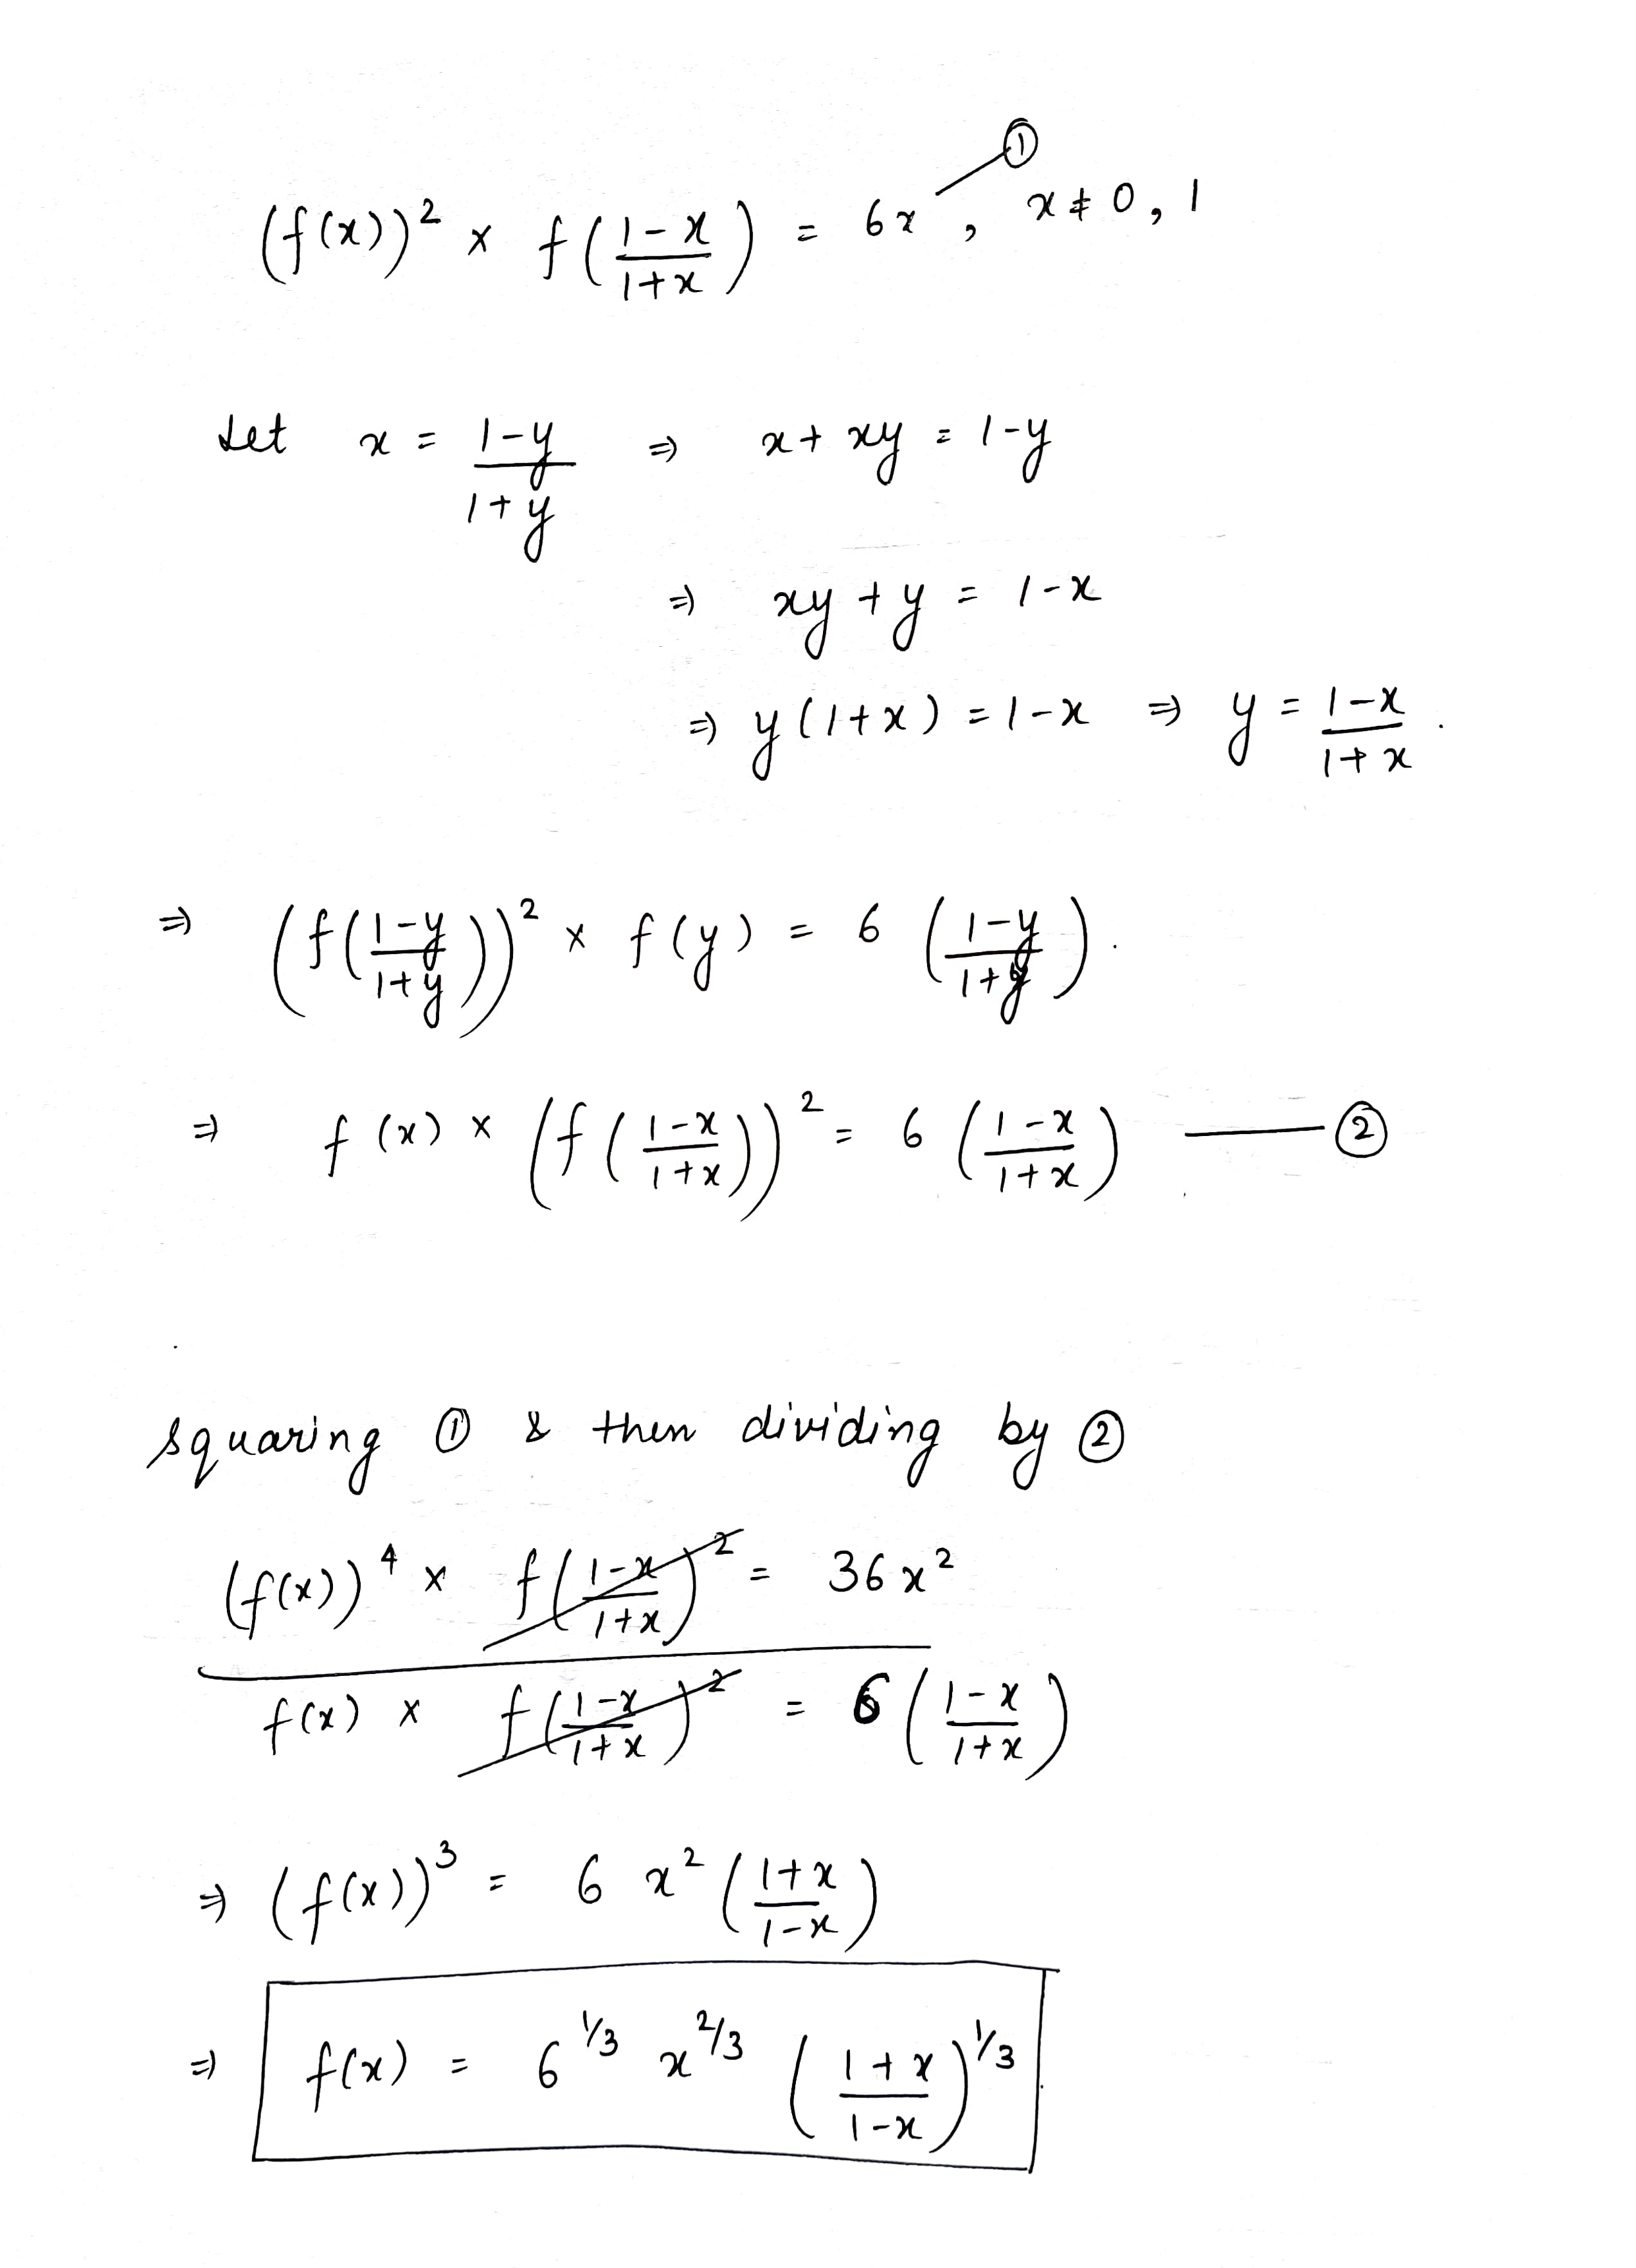 ①
(f(x))² × f((1-x)/(1+x)) = 6x , x ≠ 0, 1
Let x = (1-y)/(1+y) ⇒ x + xy = 1-y
⇒ xy + y = 1-x
⇒ y(1+x) = 1-x ⇒ y = (1-x)/(1+x) .
⇒ (f((1-y)/(1+y)))² × f(y) = 6 ((1-y)/(1+y)) .
⇒ f(x) × (f((1-x)/(1+x)))² = 6 ((1-x)/(1+x)) —— ②
squaring ① & then dividing by ②
(f(x))⁴ × f((1-x)/(1+x))² = 36x²
f(x) × f((1-x)/(1+x))² = 6((1-x)/(1+x))
⇒ (f(x))³ = 6 x² ((1+x)/(1-x))
⇒ f(x) = 6^(1/3) x^(2/3) ((1+x)/(1-x))^(1/3)